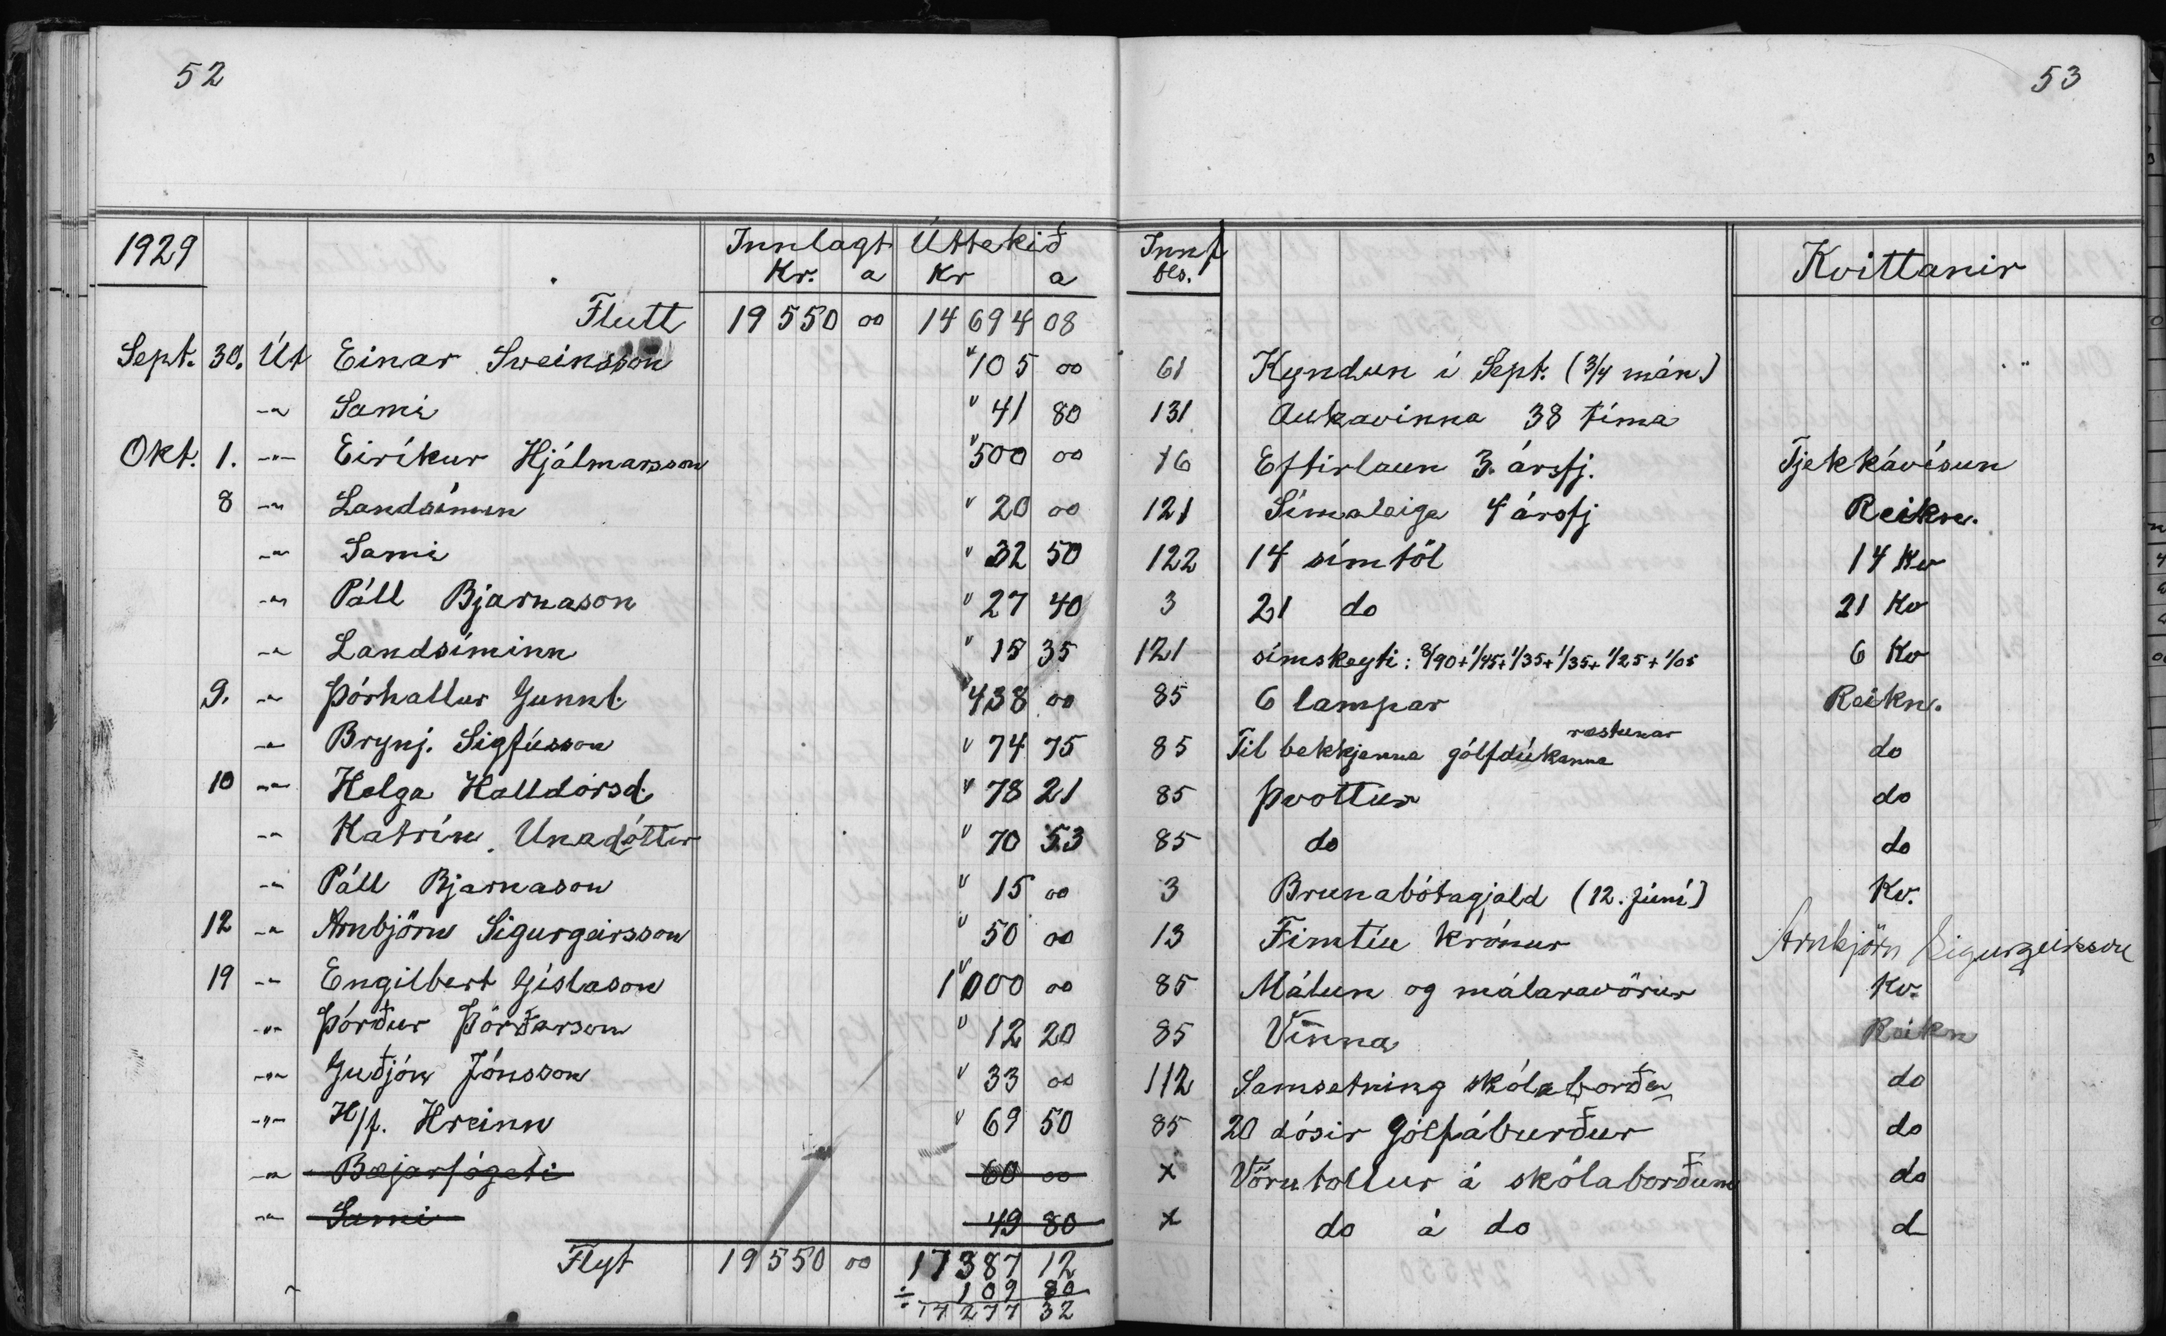 52
53
1929 Innlagt Úttekið Innf Kvittanir
Kr. a Kr a bls.
Flutt 19550 00 14694 08
Sept. 30. Út Einar Sveinsson " 105 00 61 Kyndun í Sept. (3/4 mán)
-"- Sami " 41 80 131 Aukavinna 38 tíma
Okt. 1. -"- Eiríkur Hjálmarsson " 500 00 16 Eftirlaun 3. ársfj. Tjekkávísun
8 -"- Landsíminn " 20 00 121 Símaleiga 4 ársfj Reikn.
-"- Sami " 32 50 122 14 símtöl 14 Kv
-"- Páll Bjarnason " 27 40 3 21 do 21 Kv
-"- Landsíminn " 15 35 121 símskeyti: 8/90+1/45+1/35+1/35+1/25+1/05 6 Kv
9. -"- Þórhallur Gunnl. " 438 00 85 6 lampar Reikn.
-"- Brynj. Sigfússon " 74 75 85 Til bekkjanna gólfdúkanna ræstunar do
10 -"- Helga Halldórsd. " 78 21 85 Þvottur do
-"- Katrín Unadóttir " 70 53 85 do do
-"- Páll Bjarnason " 15 00 3 Brunabótagjald (12. júní) Kv.
12 -"- Arnbjörn Sigurgeirsson " 50 00 13 Fimtíu krónur Arnbjörn Sigurgeirsson
19 -"- Engilbert Gíslason 1000 00 85 Málun og málaravörur Kv.
-"- Þórður Þórðarson " 12 20 85 Vinna Reikn
-"- Guðjón Jónsson " 33 00 112 Samsetning skólaborða do
-"- H/f. Hreinn " 69 50 85 20 dósir Gólfáburður do
-"- Bæjarfógeti 60 00 x Vörutollur á skólaborðum do
-"- Sami 49 80 x do á do d
Flyt 19550 00 17387 12
÷ 109 80
17277 32